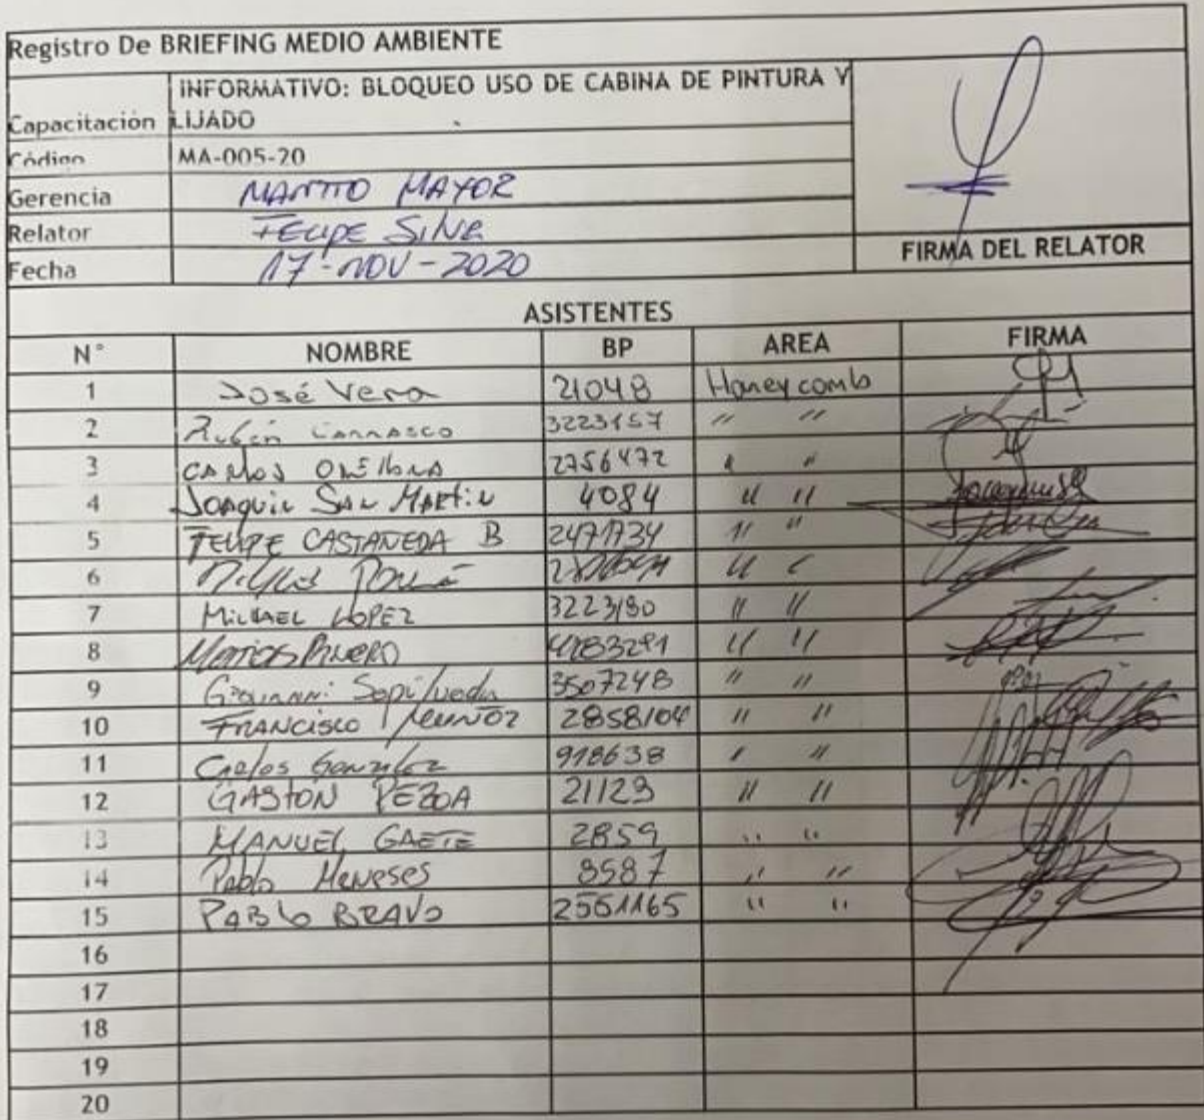 Registro De BRIEFING MEDIO AMBIENTE
INFORMATIVO: BLOQUEO USO DE CABINA DE PINTURA Y
Capacitación LIJADO
Código MA-005-20
Gerencia MANTTO MAYOR
Relator FELIPE
Fecha 17-NOV-2020
FIRMA DEL RELATOR
ASISTENTES
N° NOMBRE BP AREA FIRMA
1 José Vera 21048 Honeycomb
2 Rubén CARRASCO 3223157 " "
3 CARLOS ORELLANA 2756472 " "
4 JOAQUIN SAN MARTIN 4084 " "
5 FELIPE CASTAÑEDA B 2471734 " "
6
7 MICHAEL LOPEZ 3223180 " "
8 PIÑERO " "
9 Giovanni Sepúlveda 3507248 " "
10 FRANCISCO MUÑOZ 2858104 " "
11 Carlos González 918638 " "
12 GASTON PEZOA 21129 " "
13 MANUEL GAETE 2859 " "
14 Pablo Meneses 8587 " "
15 PABLO BRAVO 2551165 " "
16
17
18
19
20